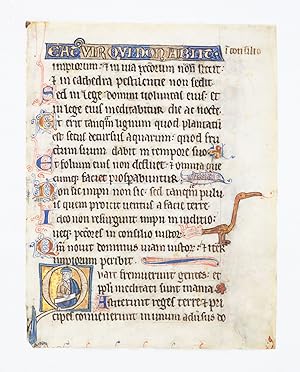 EAT VIR QVI NON ABIIT
i͛ consilio
impiorum: ⁊ in uia pc̄corum non stetit
⁊ in cathedra pestilentie non sedit
Sed in lege domini uoluntas eius: et
in lege eius meditabitur die ac nocte
Et erit tanquam lignum quod plantatum
est secus decursus aquarum: quod fru
ctum suum dabit in tempore suo
Et folium eius non defluet: ⁊ omnia que
cunque faciet prosperabuntur
Non sic impii non sic: sed tanquam pulu
is quem proicit uentus a facie terre
Ideo non resurgunt impii in iudicio
neque pc̄cores in consilio iustorum
Qm̄ nouit dominus uiam iustorum: ⁊ iter
impiorum peribit
Quare fremuerunt gentes: et
ppli meditati sunt inania
Astiterunt reges terre ⁊ prin
cipes conuenerunt in unum aduersus do